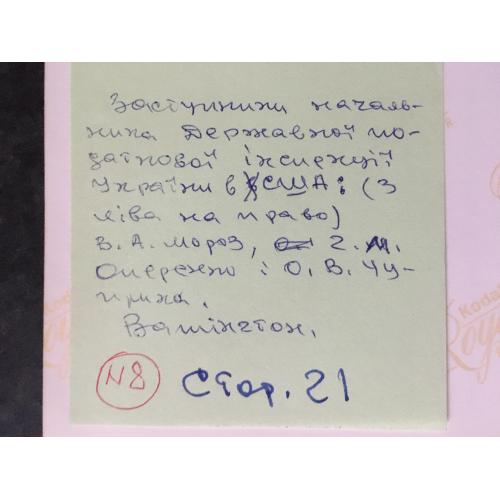 Заступники началь-
ника Державної по-
даткової інспекції
України в США: (з
ліва на право)
В. А. Мороз, Г. М.
Опережо і О. В. Чу-
прика.
Вашінгтон.
N8 Стор. 21
Kodak
Royal